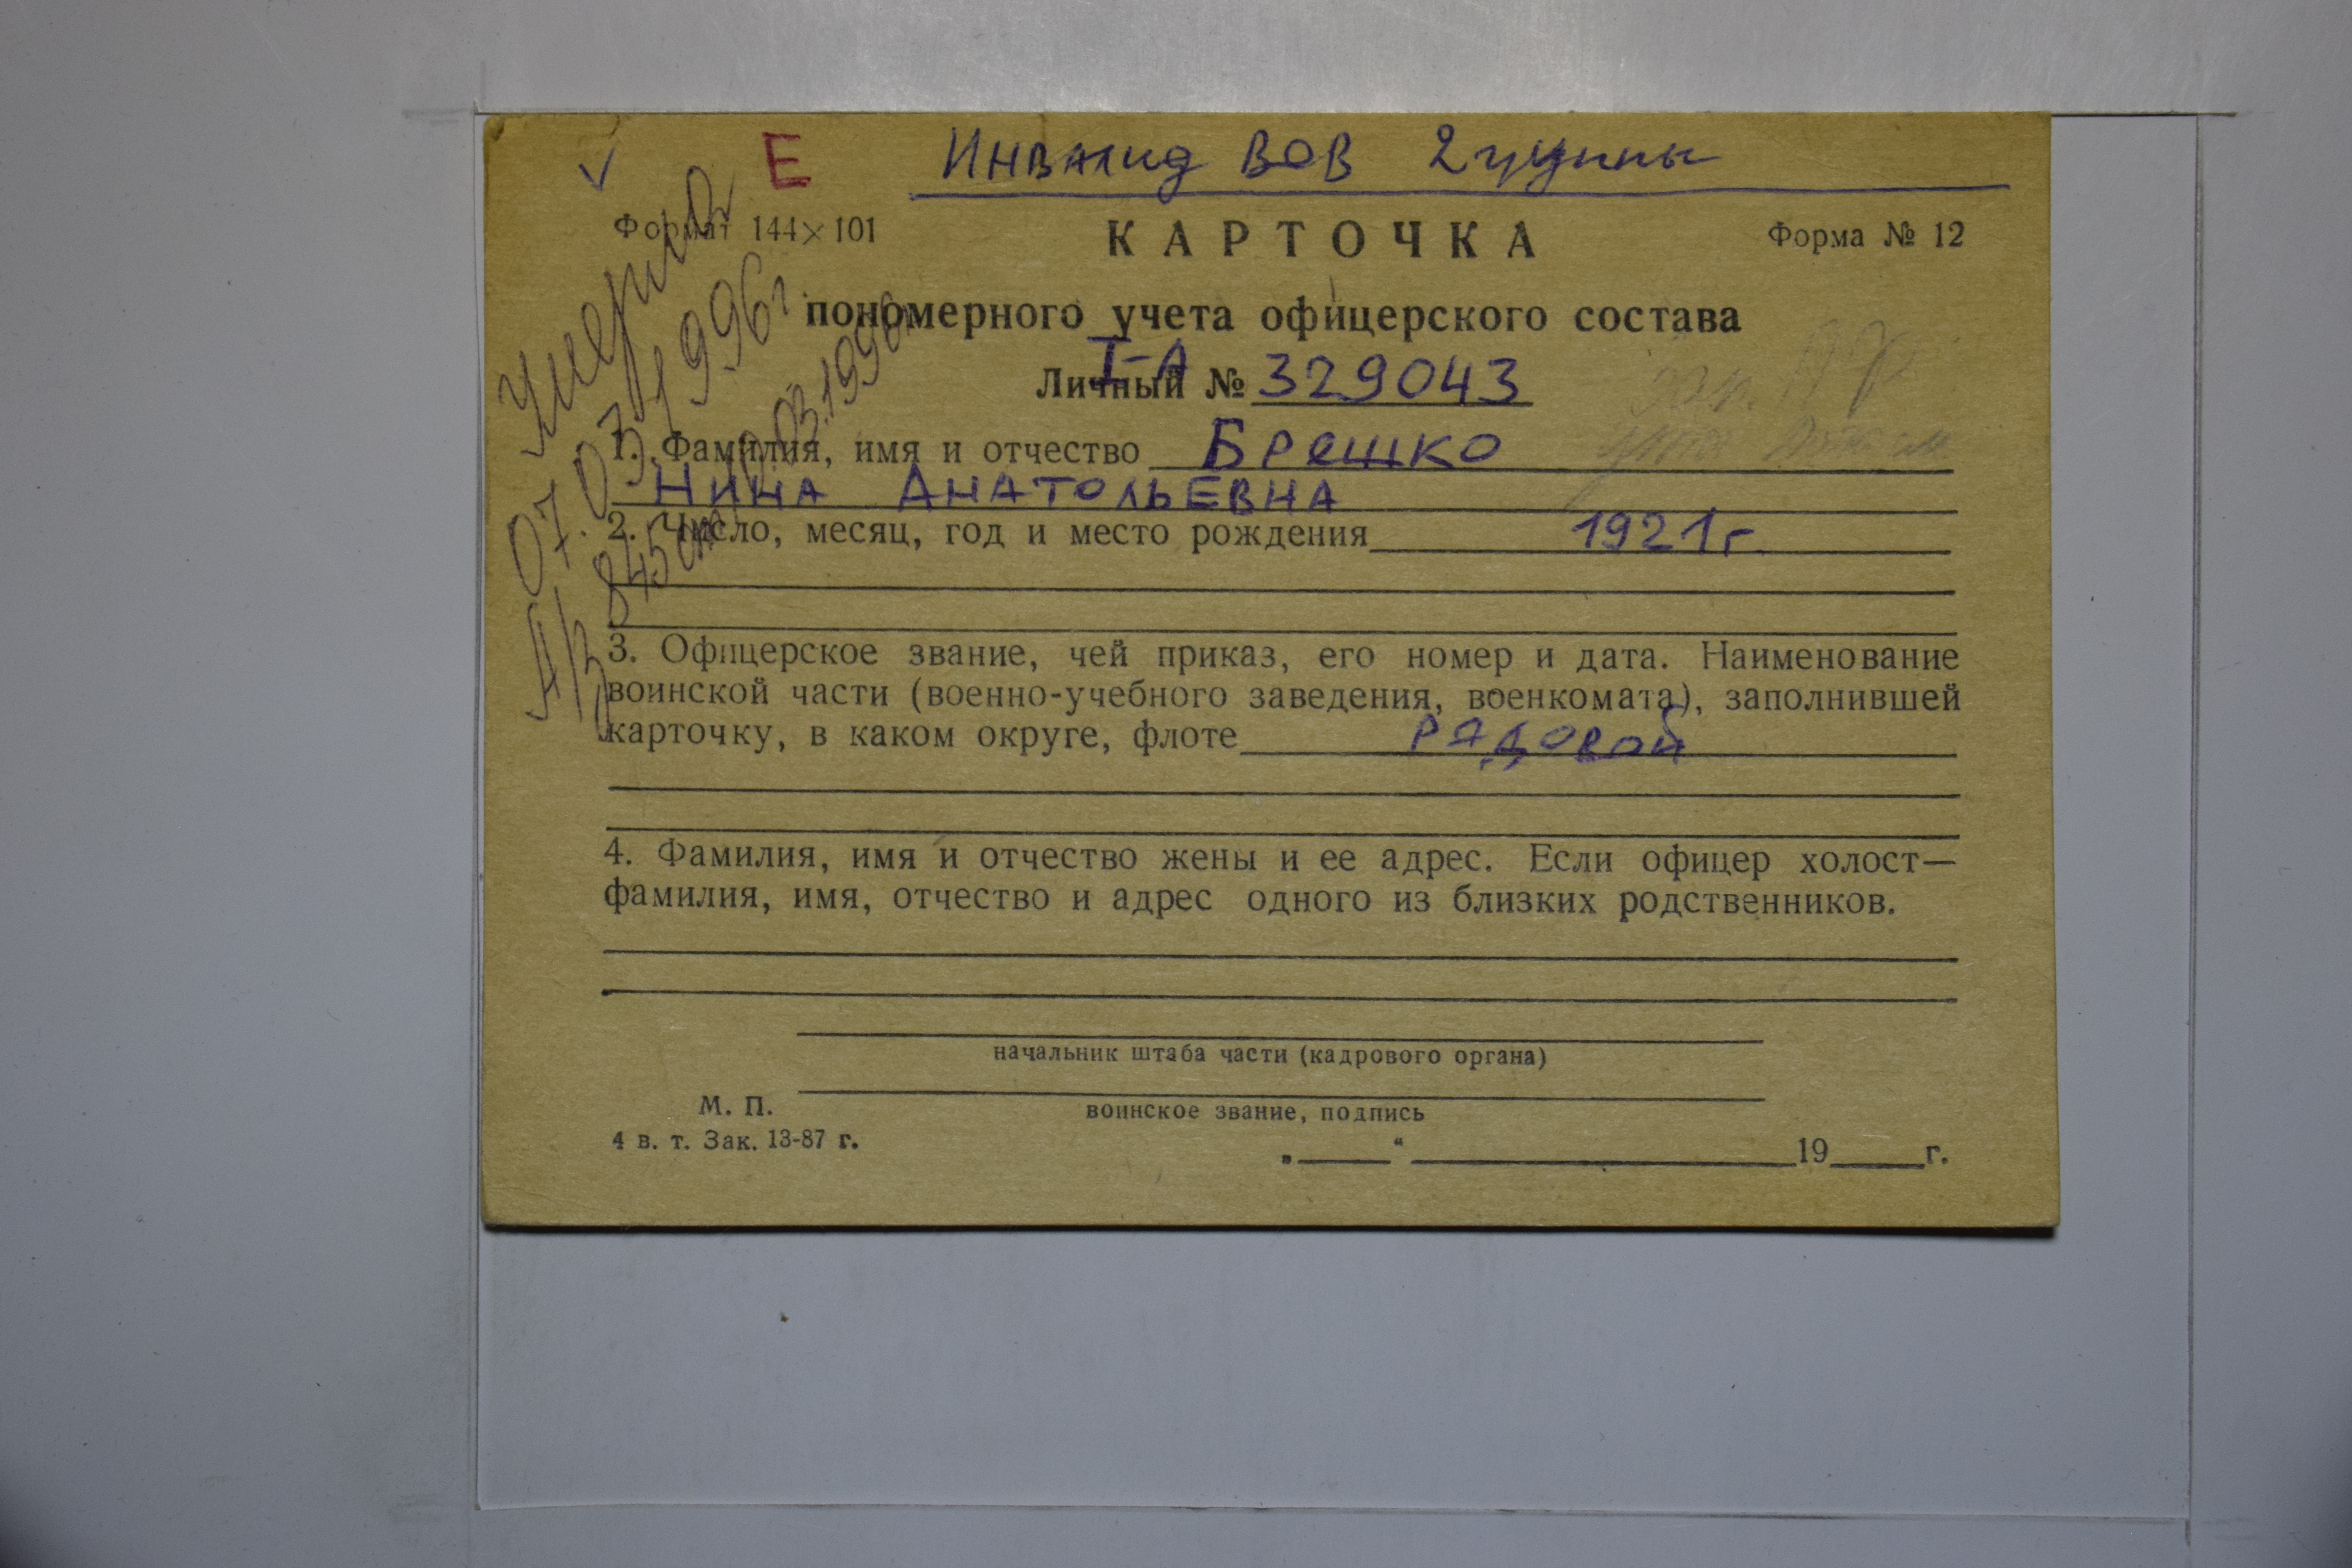 Е Инвалид ВОВ 2 группы
Формат 144×101
КАРТОЧКА
Форма № 12
пономерного учета офицерского состава
I-А
Личный № 329043
1. Фамилия, имя и отчество Брешко
Нина Анатольевна
2. Число, месяц, год и место рождения 1921 г.
3. Офицерское звание, чей приказ, его номер и дата. Наименование
воинской части (военно-учебного заведения, военкомата), заполнившей
карточку, в каком округе, флоте рядовой
4. Фамилия, имя и отчество жены и ее адрес. Если офицер холост—
фамилия, имя, отчество и адрес одного из близких родственников.
начальник штаба части (кадрового органа)
М. П.
воинское звание, подпись
4 в. т. Зак. 13-87 г.
„ “ 19 г.
Умерла
07.03.1996г
А/З 845 от 10.03.1996